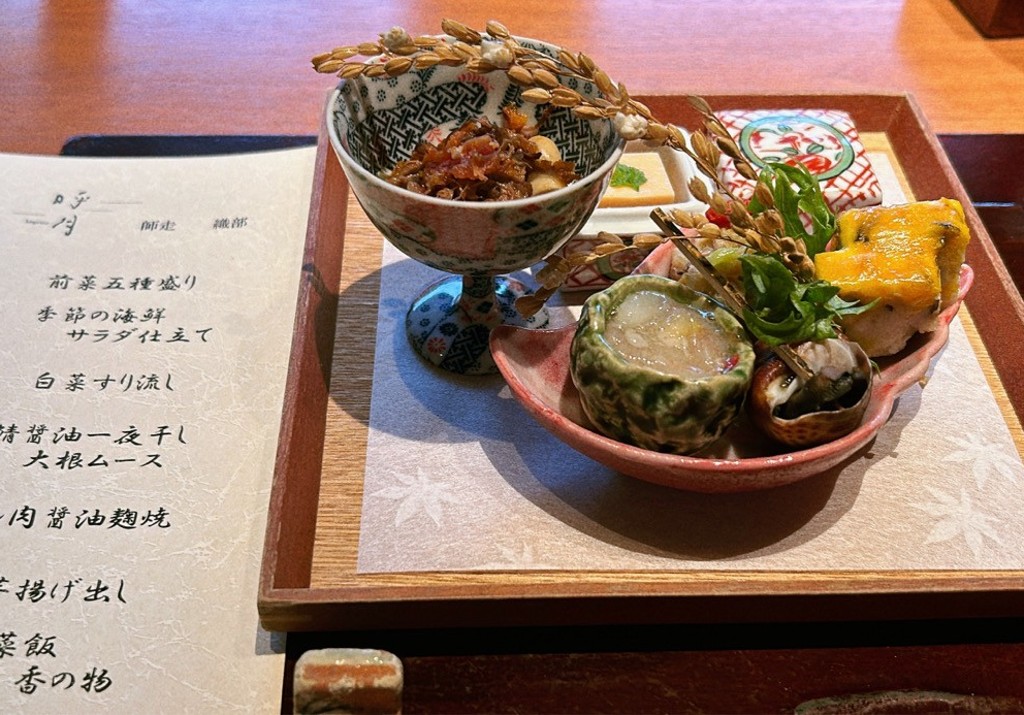 師走 織部
前菜五種盛り
季節の海鮮
サラダ仕立て
白菜すり流し
醤油一夜干し
大根ムース
肉醤油麹焼
揚げ出し
菜飯
香の物